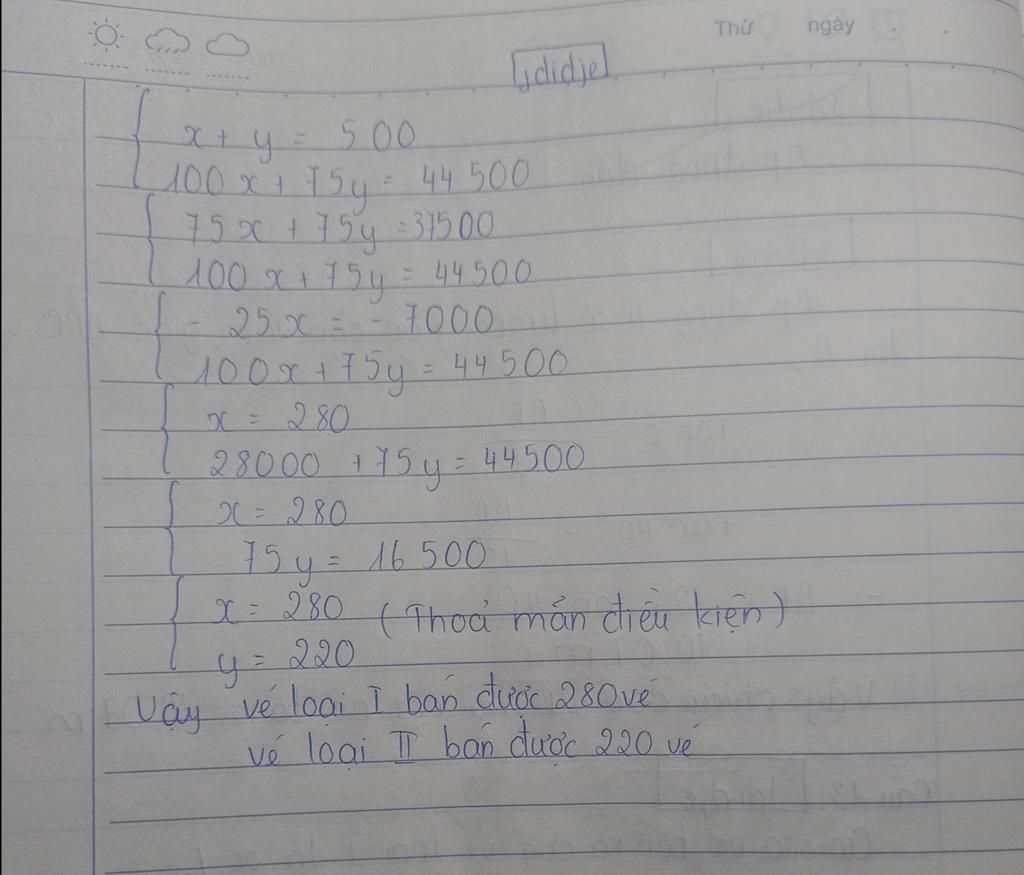 Thứ ngày
jdidje
x + y = 500
100x + 75y = 44500
75x + 75y = 37500
100x + 75y = 44500
- 25x = - 7000
100x + 75y = 44500
x = 280
28000 + 75y = 44500
x = 280
75y = 16500
x = 280 (Thoả mãn điều kiện)
y = 220
Vậy vé loại I bán được 280 vé
vé loại II bán được 220 vé